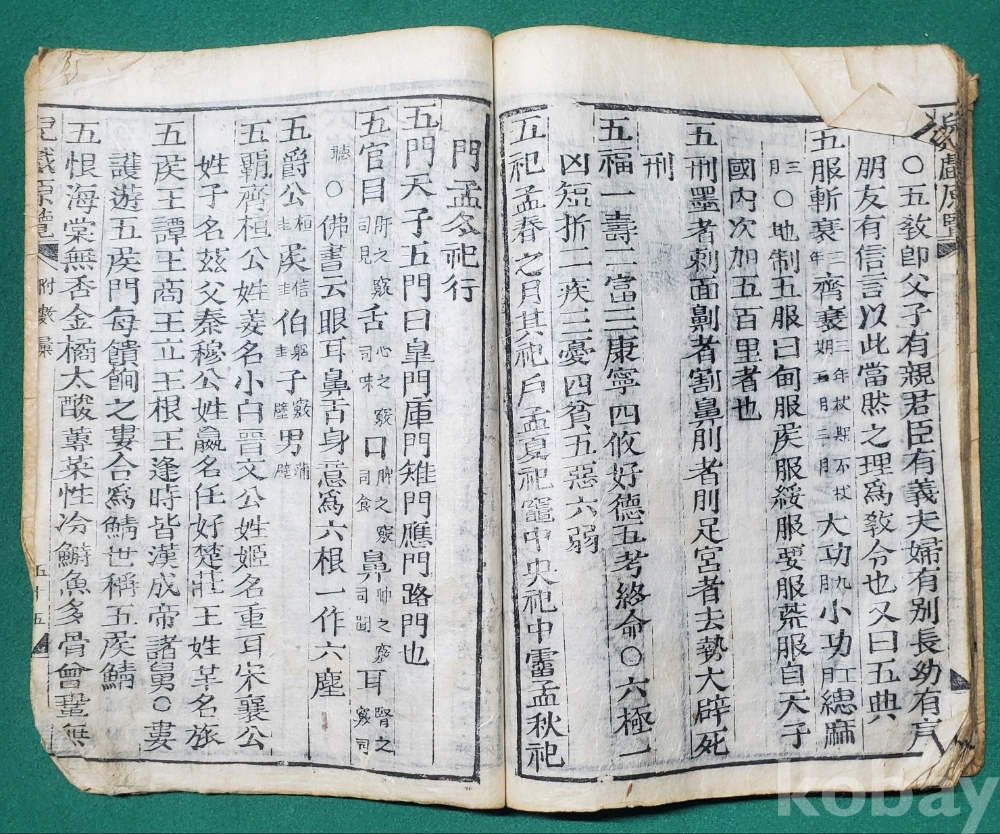 ○五敎卽父子有親君臣有義夫婦有別長幼有
朋友有信言以此當然之理爲敎令也又曰五典
五服斬衰三年齊衰三年杖期不杖期五月三月大功九月小功五月緦麻
三月○地制五服曰甸服侯服綏服要服荒服自天子
國內次加五百里者也
五刑墨者刺面劓者割鼻刖者刖足宮者去勢大辟死
刑
五福一壽二富三康寧四攸好德五考終命○六極一
凶短折二疾三憂四貧五惡六弱
五祀孟春之月其祀戶孟夏祀竈中央祀中霤孟秋祀
門孟冬祀行
五門天子五門曰皐門庫門雉門應門路門也
五官目肝之竅司見舌心之竅司味口脾之竅司食鼻肺之竅司聞耳腎之竅司
聽○佛書云眼耳鼻舌身意爲六根一作六塵
五爵公桓圭侯信圭伯躬圭子穀璧男蒲璧
五霸齊桓公姓姜名小白晉文公姓姬名重耳宋襄公
姓子名玆父秦穆公姓嬴名任好楚莊王姓芈名旅
五侯王譚王商王立王根王逢時皆漢成帝諸舅○婁
護遊五侯門每饋餉之婁合爲鯖世稱五侯鯖
五恨海棠無香金橘太酸蓴菜性冷鰣魚多骨曾鞏無
兒戲原覽 附數彙 五十五
kobay